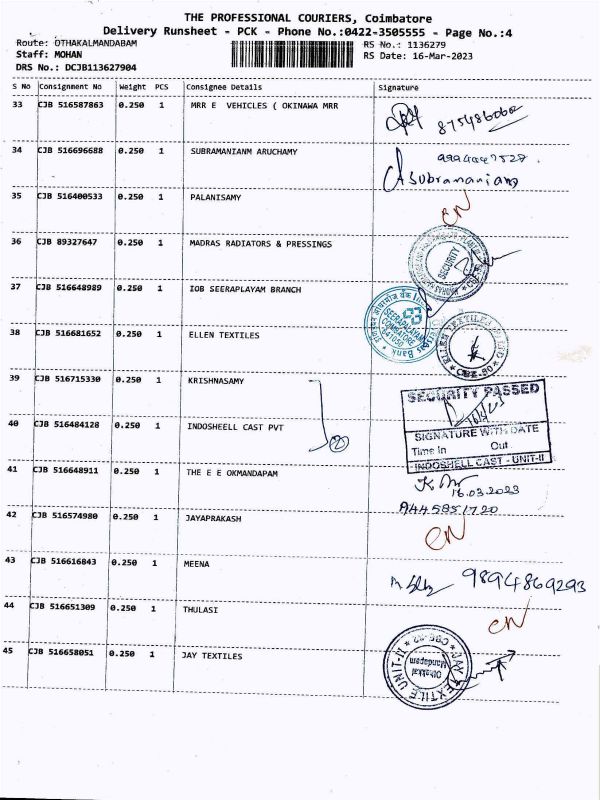 THE PROFESSIONAL COURIERS, Coimbatore
Delivery Runsheet - PCK - Phone No.:0422-3505555 - Page No.:4
Route: OTHAKALMANDABAM RS No.: 1136279
Staff: MOHAN RS Date: 16-Mar-2023
DRS No.: DCJB113627904
S No Consignment No Weight PCS Consignee Details Signature
33 CJB 516587863 0.250 1 MRR E VEHICLES ( OKINAWA MRR
34 CJB 516696688 0.250 1 SUBRAMANIANM ARUCHAMY
ASubramaniam
35 CJB 516400533 0.250 1 PALANISAMY
CN
36 CJB 89327647 0.250 1 MADRAS RADIATORS & PRESSINGS
SECURITY
37 CJB 516648989 0.250 1 IOB SEERAPLAYAM BRANCH
SEERAPALAYAM
COIMBATORE
641050
38 CJB 516681652 0.250 1 ELLEN TEXTILES
CBE-50
39 CJB 516715330 0.250 1 KRISHNASAMY
SECURITY PASSED
40 CJB 516484128 0.250 1 INDOSHEELL CAST PVT
2
SIGNATURE WITH DATE
Time In Out
INDOSHELL CAST - UNIT-II
41 CJB 516648911 0.250 1 THE E E OKMANDAPAM
16.03.2023
9445851720
42 CJB 516574980 0.250 1 JAYAPRAKASH
CN
43 CJB 516616843 0.250 1 MEENA
9894869293
44 CJB 516651309 0.250 1 THULASI
CN
45 CJB 516658051 0.250 1 JAY TEXTILES
JAY TEXTILE UNIT-II
Othakkal
Mandapam